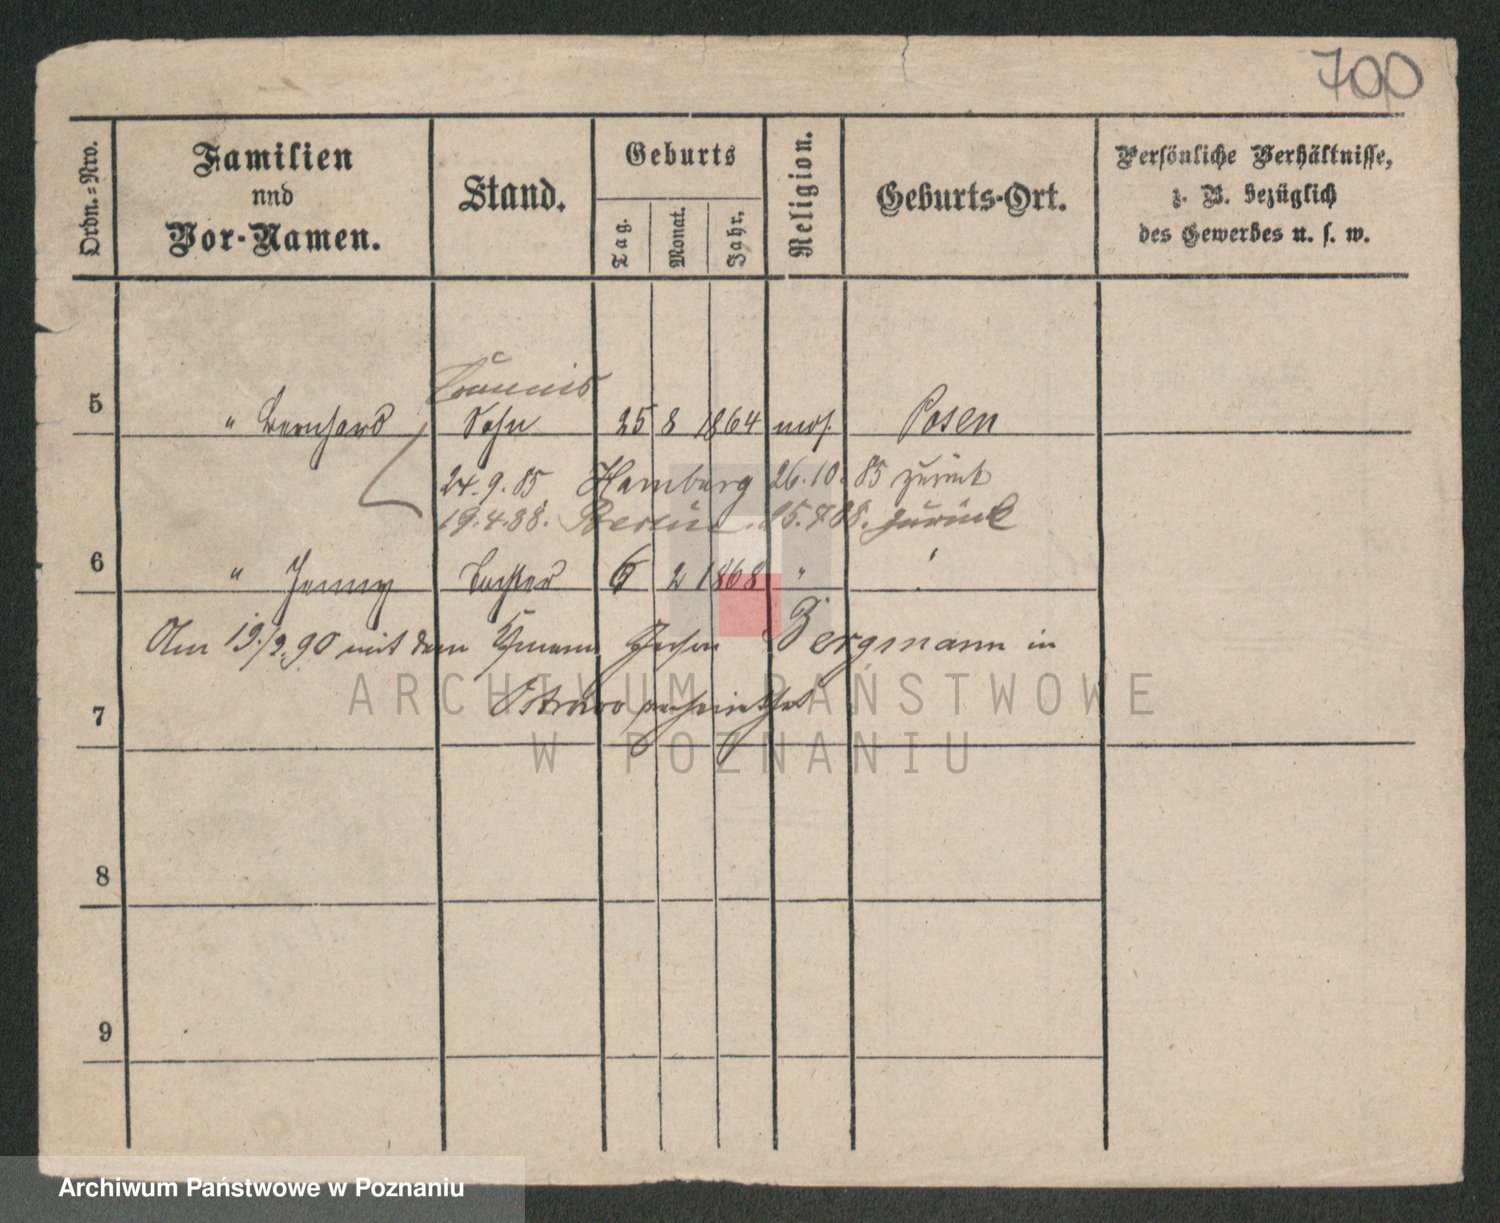 700
Ordn.=Nro.
Familien
und
Vor-Namen.
Stand.
Geburts
Tag.
Monat.
Jahr.
Religion.
Geburts-Ort.
Persönliche Verhältnisse,
z. B. bezüglich
des Gewerbes u. s. w.
Commis
5 " Bernhard Sohn 25 8 1864 mos. Posen
24.9.85 Hamburg 26.10.85 zurück
19.4.88. Berlin 15.7.88. zurück
6 " Jenny Tochter 6 2 1868 " "
Am 19./2.90 mit dem Bergmann in
7 Ostrowo verheirathet
8
9
ARCHIWUM PAŃSTWOWE
W POZNANIU
Archiwum Państwowe w Poznaniu